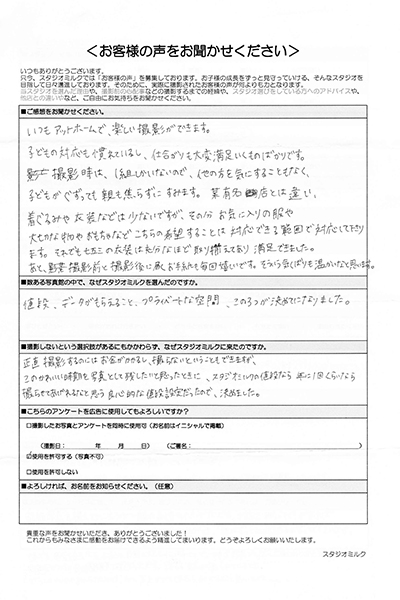 <お客様の声をお聞かせください>
いつもありがとうございます。
只今、スタジオミルクでは「お客様の声」を募集しております。お子様の成長をずっと見守っていける、そんなスタジオを
目指して日々邁進しております。そのために、実際に撮影されたお客様の声が何よりもの力となります。
当スタジオを選んだ理由や、撮影前の心配事などの撮影するまでの経緯や、スタジオ選びをしている方へのアドバイスや、
他店との違いetcなど、ご自由にお気持ちをお聞かせください。
■ご感想をお聞かせください。
いつもアットホームで、楽しい撮影ができます。
子どもの対応も慣れているし、仕上がりも大変満足いくものばかりです。
撮影時は、1組しかいないので、他の方を気にすることもなく、
子どもがぐずっても親も焦らずにすみます。某有名店とは違い、
着ぐるみや衣装などは少ないですが、その分お気に入りの服や
大切な物やおもちゃなどこちらの希望することは対応できる範囲で対応して下さり
ます。それでも七五三の衣装は充分なほど取り揃えてあり満足できました。
あと、撮影前と撮影後に届くお手紙も毎回嬉しいです。そういう気くばりも温かいなと思います。
■数ある写真館の中で、なぜスタジオミルクを選んだのですか。
値段、データがもらえること、プライベートな空間、この3つが決めてになりました。
■撮影しないという選択肢があるにもかかわらず、なぜスタジオミルクに来たのですか。
正直撮影するのにはお金がかかるし、撮らないということもできますが、
このかわいい時期を写真として残したいと思ったときに、スタジオミルクの値段なら年に1回くらいなら
撮らせてあげれるなと思う良心的な値段設定だったので、決めました。
■こちらのアンケートを広告に使用してもよろしいですか？
□撮影したお写真とアンケートを同時に使用可（お名前はイニシャルで掲載）
（撮影日： 年 月 日）（ご署名： ）
☑使用を許可する（写真不可）
□使用を許可しない
■よろしければ、お名前をお知らせください。（任意）
貴重な声をお聞かせいただき、ありがとうございました！
これからもみなさまに感動をお届けできるよう精進してまいります。どうぞよろしくお願いいたします。
スタジオミルク